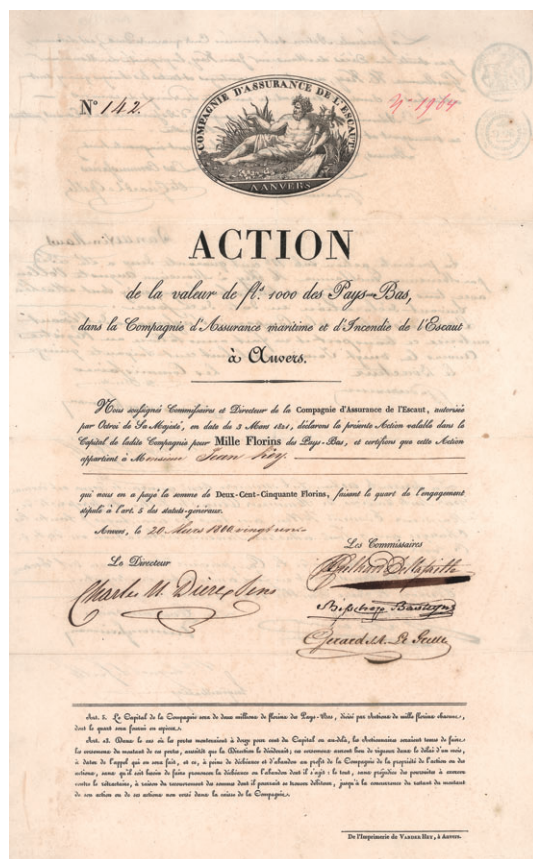 COMPAGNIE D'ASSURANCE DE L'ESCAUT
A ANVERS
N° 142.
N° 1964
ACTION
de la valeur de fl.s 1000 des Pays-Bas,
dans la Compagnie d'Assurance maritime et d'Incendie de l'Escaut
à Anvers.
Nous soussignés Commissaires et Directeur de la Compagnie d'Assurance de l'Escaut, autorisée
par Octroi de Sa Majesté, en date du 3 Mars 1821, déclarons la présente Action valable dans le
Capital de ladite Compagnie pour Mille Florins des Pays-Bas, et certifions que cette Action
appartient à Monsieur Jean
qui nous en a payé la somme de Deux-Cent-Cinquante Florins, faisant le quart de l'engagement
stipulé à l'art. 5 des statuts-généraux.
Anvers, le 20 Mars
Le Directeur
Les Commissaires
Charles
Gerard
Art. 5. Le Capital de la Compagnie sera de deux millions de florins des Pays-Bas, divisé par Actions de mille florins chacune,
dont le quart sera fourni en espèces.
Art. 13. Dans le cas où les pertes monteraient à douze pour cent du Capital ou au-delà, les Actionnaires seraient tenus de faire
les versemens du montant de ces pertes, aussitôt que la Direction le déciderait; ces versemens auront lieu de rigueur dans le délai d'un mois,
à dater de l'appel qui en sera fait, et ce, à peine de déchéance et d'abandon au profit de la Compagnie de la propriété de l'action ou des
actions, sans qu'il soit besoin de faire prononcer la déchéance ou l'abandon dont il s'agit: le tout, sans préjudice des poursuites à exercer
contre le rétractaire, à raison du recouvrement des sommes dont il pourrait se trouver débiteur, jusqu'à la concurrence du restant du montant
de son action ou de ses actions non versé dans la caisse de la Compagnie.
De l'Imprimerie de VANDER HEY, à ANVERS.